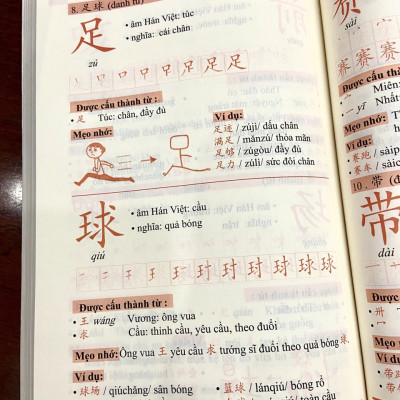 8. 足球 (danh từ)
足
zú
• âm Hán Việt: túc
• nghĩa: cái chân
Được cấu thành từ :
• 足 Túc: chân, đầy đủ
Mẹo nhớ:
Ví dụ:
足迹 / zújì/ dấu chân
满足 / mǎnzú/ thỏa mãn
足够 / zúgòu/ đầy đủ
足力 / zúlì/ sức đôi chân
球
qiú
• âm Hán Việt: cầu
• nghĩa: quả bóng
Được cấu thành từ :
• 王 wáng Vương: ông vua
• 求 Cầu: thỉnh cầu, yêu cầu, theo đuổi
Mẹo nhớ: Ông vua 王 yêu cầu 求 tướng sĩ đuổi theo quả bóng 球.
Ví dụ:
• 球场 / qiúchǎng/ sân bóng
• 篮球 / lánqiú/ bóng rổ
赛
sài
Miên:
一 yī Nhất:
Mẹo nhớ:
Ví dụ:
• 赛跑/ sàip
• 赛车/ sàic
10. 带 (đ
带
dài
Được cấu
Mẹo nhớ
Ví dụ: